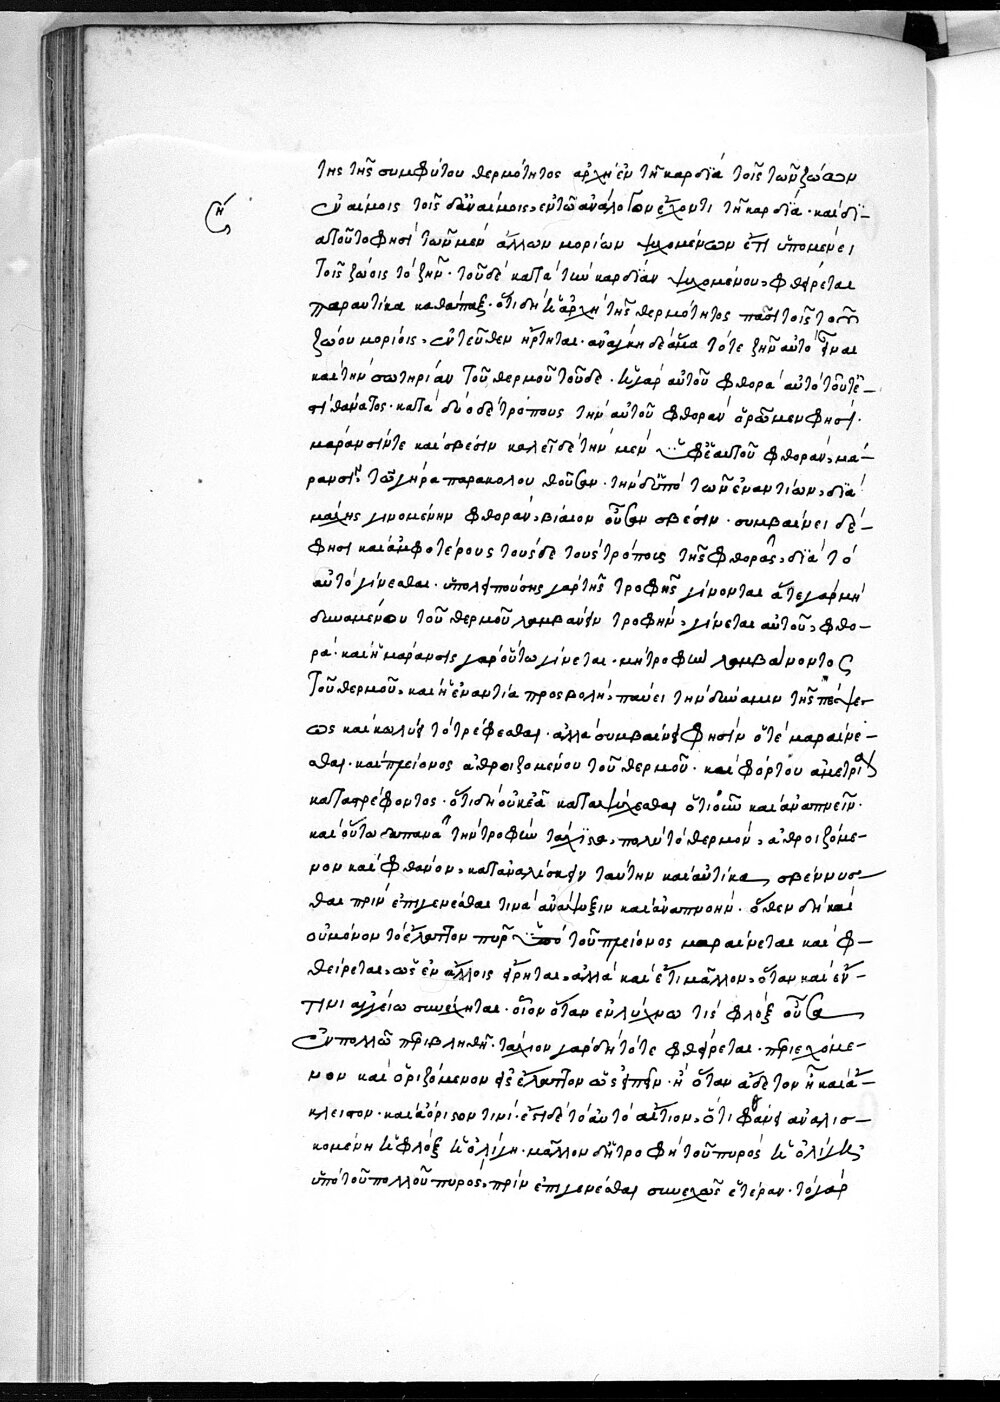 της τῆς συμφύτου θερμότητος ἀρχὴ ἐν τῆ καρδία τοῖς τῶν ζώων
ἐναίμοις τοῖς δ' ἀναίμοις, ἐν τῶ ἀνάλογον ἔχοντι τῆ καρδία. καὶ δι-
ὰ τοῦτο φησὶ τῶν μὲν ἄλλων μορίων ψυχομένων ἔτι ὑπομένει
τοῖς ζώοις τὸ ζῆν. τοῦ δὲ κατὰ τὴν καρδίαν ψυχομένου, φθείρεται
παραυτίκα καθάπαξ. ὅτι δὴ ἡ ἀρχὴ τῆς θερμότητος πᾶσι τοῖς τοῦ
ζώου μορίοις, ἐντεῦθεν ἤρτηται. ἀνάγκη δὲ ἅμα τό τε ζῆν αὐτὸ εἶναι
καὶ τὴν σωτηρίαν τοῦ θερμοῦ τοῦδε. ἡ γὰρ αὐτοῦ φθορὰ αὐτὸ τοῦτέ-
στι θάνατος. κατὰ δύο δὲ τρόπους τὴν αὐτοῦ φθορὰν ὁρῶμεν φησί.
μάρανσίν τε καὶ σβέσιν καλεῖ δὲ τὴν μὲν ὑφ' ἑαυτοῦ φθορὰν, μά-
ρανσιν, τῶ γήρα παρακολουθοῦσαν. τὴν δ' ὑπὸ τῶν ἐναντίων, διὰ
μάχης γινομένην φθορὰν, βίαιον οὖσαν σβέσιν. συμβαίνει δέ
φησι καὶ ἀμφοτέρους τούσδε τοὺς τρόπους τῆς φθορᾶς, διὰ τὸ
αὐτὸ γίνεσθαι. ὑπολειπούσης γὰρ τῆς τροφῆς γίνονται ἅτε γὰρ μὴ
δυναμένου τοῦ θερμοῦ λαμβάνειν τροφὴν, γίνεται αὐτοῦ, φθο-
ρά. καὶ ἡ μάρανσις γὰρ οὕτω γίνεται. μὴ τροφὴν λαμβάνοντος
τοῦ θερμοῦ, καὶ ἡ ἐναντία προσβολὴ, παύει τὴν δύναμιν τῆς πέψε-
ως καὶ κωλύει τὸ τρέφεσθαι. ἀλλὰ συμβαίνει φησὶν ὁτὲ μαραίνε-
σθαι. καὶ πλείονος ἀθροιζομένου τοῦ θερμοῦ. καὶ φόρτου ἀμετρίας
καταστρέφοντος. ὅτι δὴ οὐκ ἐᾶ καταψύχεσθαι ὅτιοῦν καὶ ἀναπνεῖν.
καὶ οὕτω δαπανᾶ τὴν τροφὴν τάχιστα, πολὺ τὸ θερμὸν, ἀθροιζόμε-
νον καὶ φθάνον, καταναλίσκειν ταύτην καὶ αὐτίκα, σβέννυσ-
θαι πρὶν ἐπιγενέσθαι τινὰ ἀνάψυξιν καὶ ἀναπνοήν. ὅθεν δὴ καὶ
οὐ μόνον τὸ ἔλαττον πῦρ ὑπὸ τοῦ πλείονος μαραίνεται καὶ φ-
θείρεται, ὡς ἐν ἄλλοις εἴρηται, ἀλλὰ καὶ ἔτι μᾶλλον, ὅταν καὶ ἔν
τινι ἀγγείω συνέχηται. οἷον ὅταν ἐν λύχνω τις φλὸξ οὖσα
ἐν πολλῶ περιβληθῆ. τάχιον γὰρ δὴ τότε φθείρεται. περιεχόμε-
νον καὶ ὁριζόμενον εἰς ἔλαττον ὡς εἰπεῖν. ἢ ὅταν ἄδετον ἦ καὶ ἄ-
κλειστον. καὶ ἀόριστον τινί. ἔστι δὲ τὸ αὐτὸ αἴτιον, ὅτι φθάνει ἀναλισ-
κομένη ἡ φλὸξ ἡ ὀλίγη. μᾶλλον δὲ ἡ τροφὴ τοῦ πυρὸς ἡ ὀλίγη,
ὑπὸ τοῦ πολλοῦ πυρὸς, πρὶν ἐπιγενέσθαι συνεχῶς ἑτέραν. τὸ γὰρ